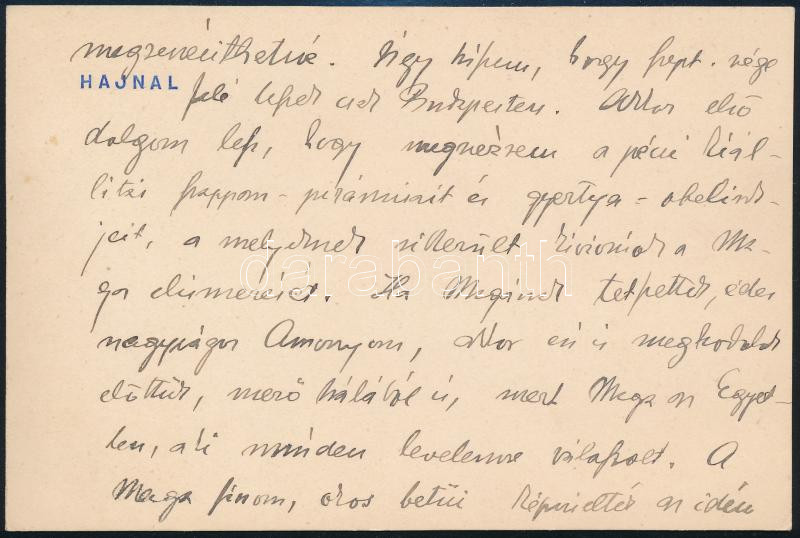 megrenésithetné. Úgy hiszem, hogy szept. vége
HAJNAL
felé leszek csak Budapesten. Akkor első
dolgom lesz, hogy megnézzem a pécsi kiál-
lítási szappan-piramisait és gyertya-obeliszk-
jeit, a melyeknek sikerült kivívniok a Ma-
ga elismerését. Ha Magának tetszettek, édes
nagyságos Asszonyom, akkor én is meghódolok
előttük, merő hálából is, mert Maga az Egyet-
len, a ki minden levelemre válaszolt. A
Maga finom, okos betűi képviselték az idén
darabanth